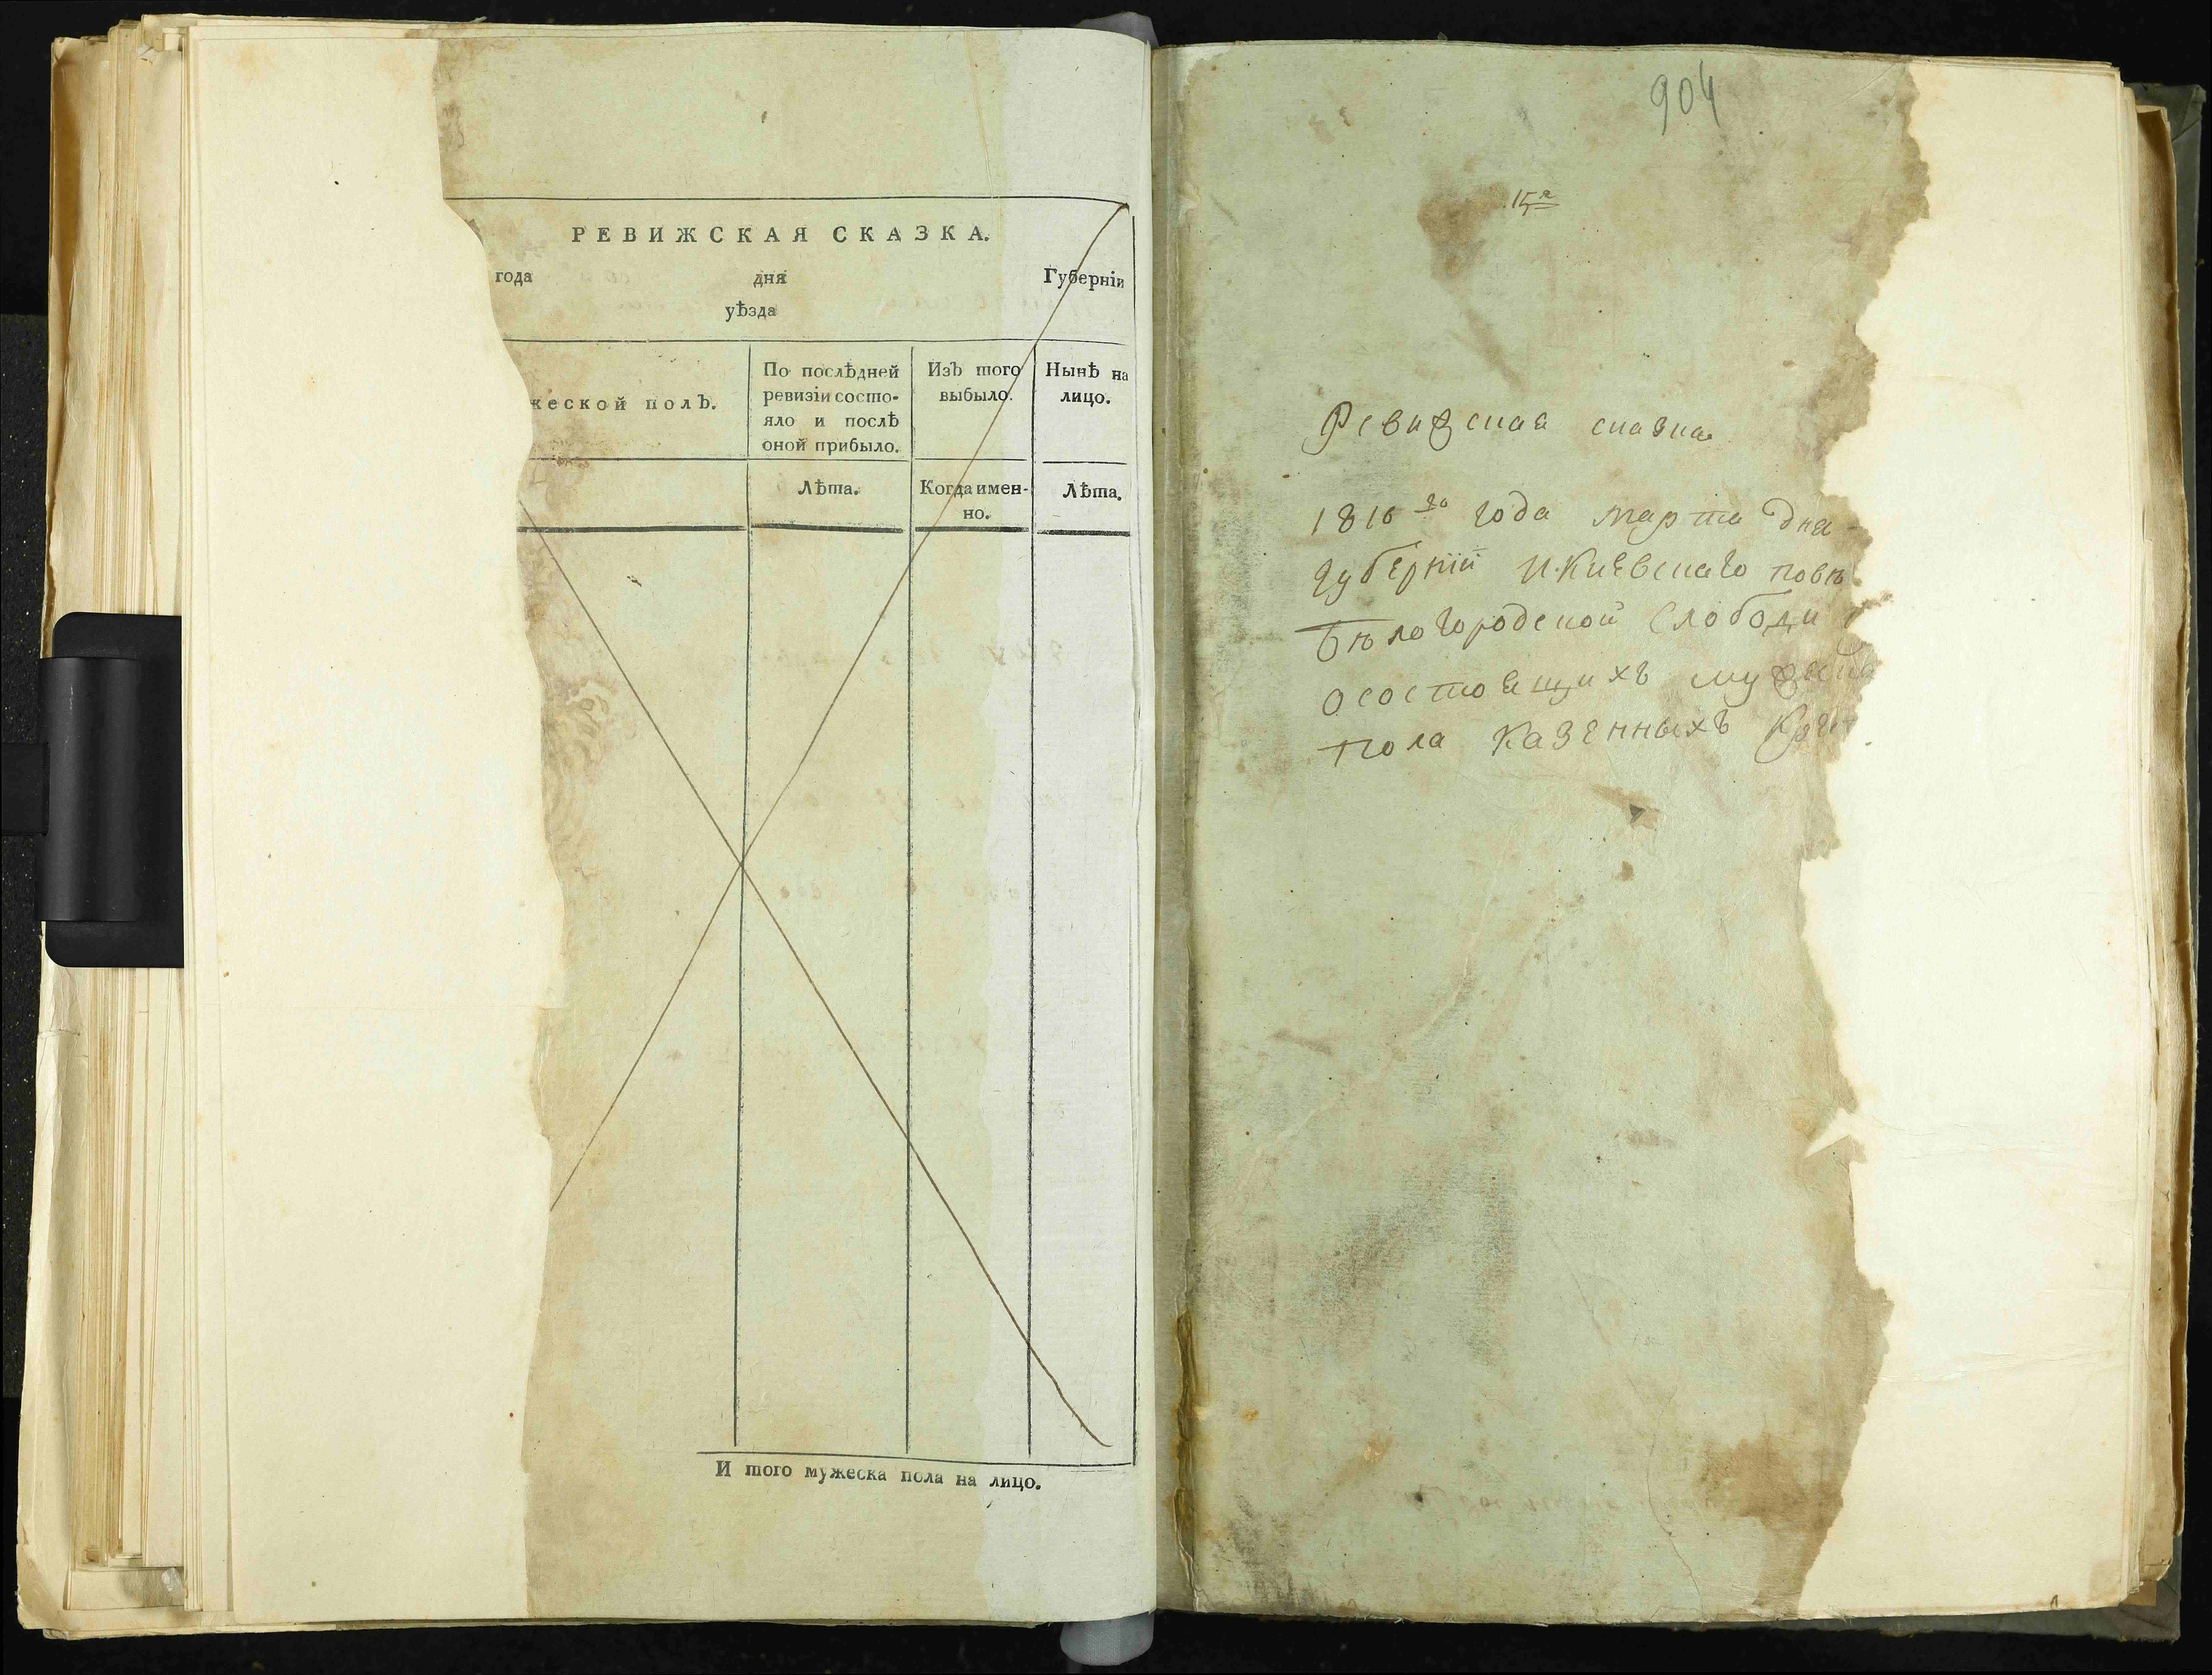 РЕВИЖСКАЯ СКАЗКА.
года дня Губерніи
уѣзда
жеской полЪ.
По послѣдней
ревизіи состо-
яло и послѣ
оной прибыло.
ИзЪ того
выбыло.
Нынѣ на
лицо.
Лѣта.
Когда имен-
но.
Лѣта.
И того мужеска пола на лицо.
904
15я
Ревижская сказка
1816го года марта дня
Губерніи и Киевскаго повѣ
Бѣлогородской Слободи
о состоящихъ мужеска
пола Казенныхъ Крес